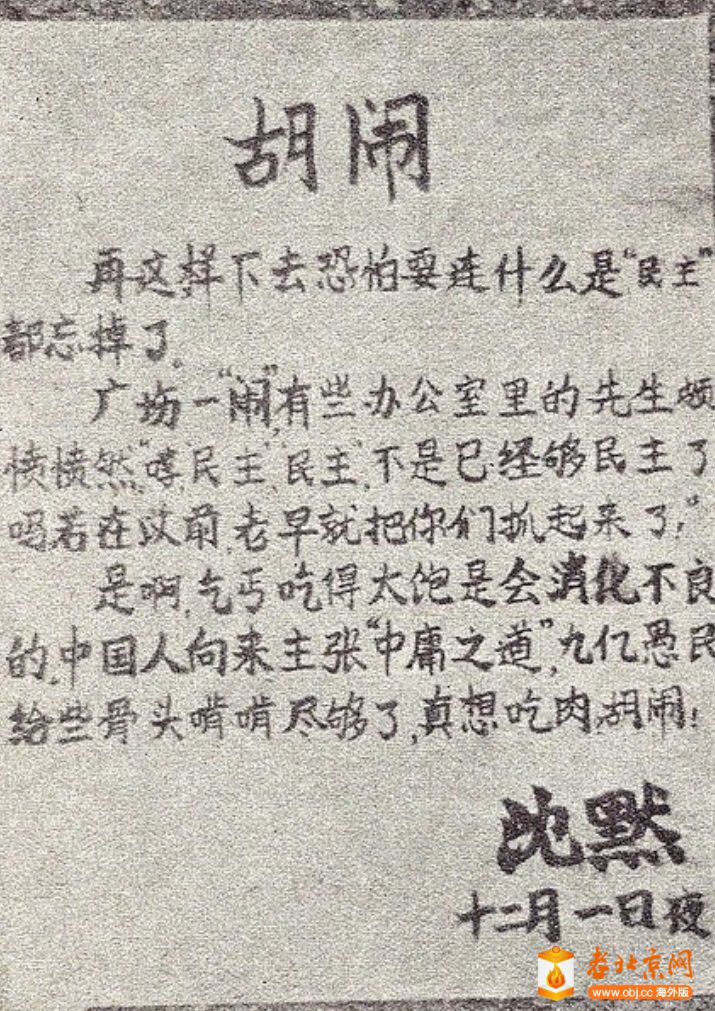 胡闹
再这样下去恐怕要连什么是“民主”
都忘掉了。
广场一“闹”,有些办公室里的先生颇
愤愤然,“哼,民主”“民主”,不是已经够民主了
吗,若在以前,老早就把你们抓起来了!”
是啊,乞丐吃得太饱是会消化不良
的,中国人向来主张“中庸之道”,九亿愚民
给些骨头啃啃尽够了,真想吃肉,胡闹!
沈默
十二月一日夜
老北京网
www.obj.cc 海外版